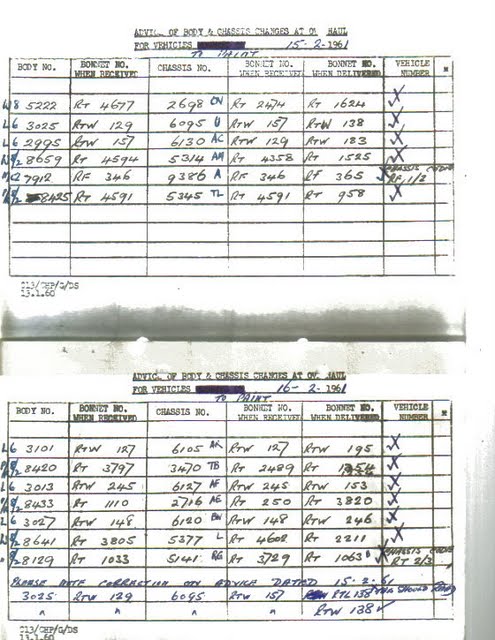 ADVICE OF BODY & CHASSIS CHANGES AT OV HAUL
FOR VEHICLES 15-2-1961
TO PAINT
BODY NO. BONNET NO. WHEN RECEIVED CHASSIS NO. BONNET NO. WHEN RECEIVED BONNET NO. WHEN DELIVERED VEHICLE NUMBER
W8 5222 RT 4677 2698 RT 2474 RT 1624 X
L6 3025 RTW 129 6095 U RTW 157 RTW 138 X
L6 2995 RTW 157 6130 AC RTW 129 RTW 183 X
8659 RT 4594 5314 AM RT 4358 RT 1525 X
7912 RF 346 9386 A RF 346 RF 365 X CHASSIS CODE RF 1/2
8425 RT 4591 5345 TL RT 4591 RT 958 X
C13/CHP/G/DS
13.1.60
ADVICE OF BODY & CHASSIS CHANGES AT OV HAUL
FOR VEHICLES 16-2-1961
TO PAINT
BODY NO. BONNET NO. WHEN RECEIVED CHASSIS NO. BONNET NO. WHEN RECEIVED BONNET NO. WHEN DELIVERED VEHICLE NUMBER
L6 3101 RTW 127 6105 AK RTW 127 RTW 195 X
8420 RT 3797 3470 TB RT 2489 RT X
L6 3013 RTW 245 6127 AF RTW 245 RTW 153 X
8433 RT 1110 2716 AE RT 250 RT 3820 X
L6 3027 RTW 148 6120 BW RTW 148 RTW 246 X
8641 RT 3805 5377 L RT 4602 RT 2211 X
8129 RT 1033 5141 RG RT 3729 RT 1063 CHASSIS CODE RT 2/3
PLEASE NOTE CORRECTION ON ADVICE DATED 15-2-61
3025 RTW 129 6095 RTW 157 RTL 138 THIS SHOULD READ
" " " " RTW 138 ✓
C13/CHP/G/DS
13.1.60